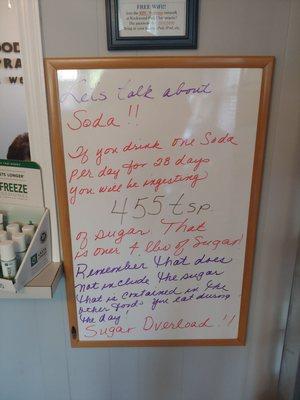 FREE WiFi!
Lets talk about
Soda !!
If you drink one Soda
Per day for 28 days
You will be ingesting
455 tsp.
of Sugar That
is over 4 lbs of Sugar!
Remember that does
not include the sugar
that is contained in the
other foods you eat during
the day!
Sugar Overload !!
LONGER
FREEZE